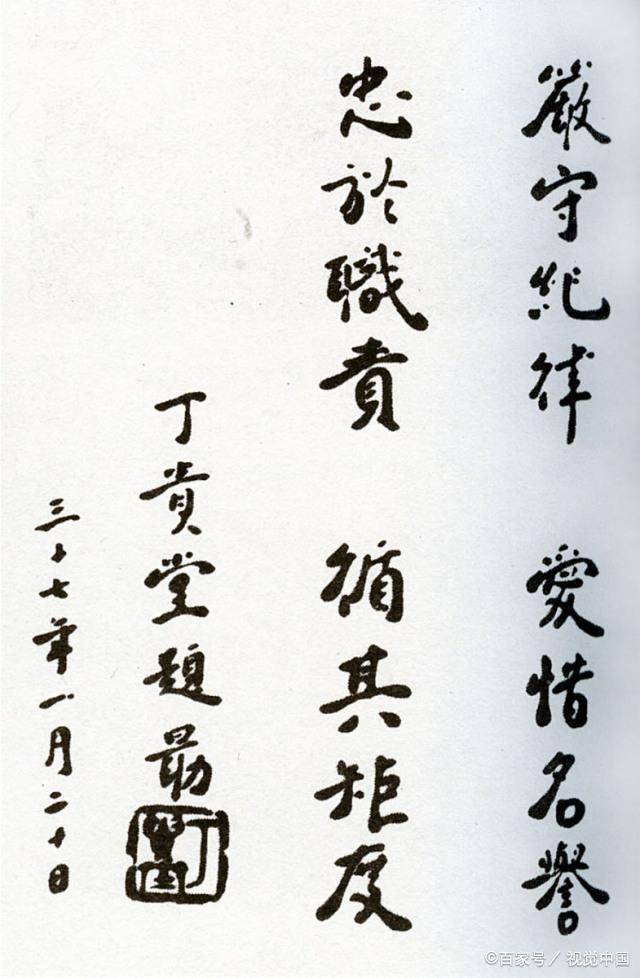 嚴守紀律 愛惜名譽
忠於職責 循其矩度
丁貴堂題勗
三十七年一月二十日
©百家号 / 视觉中国